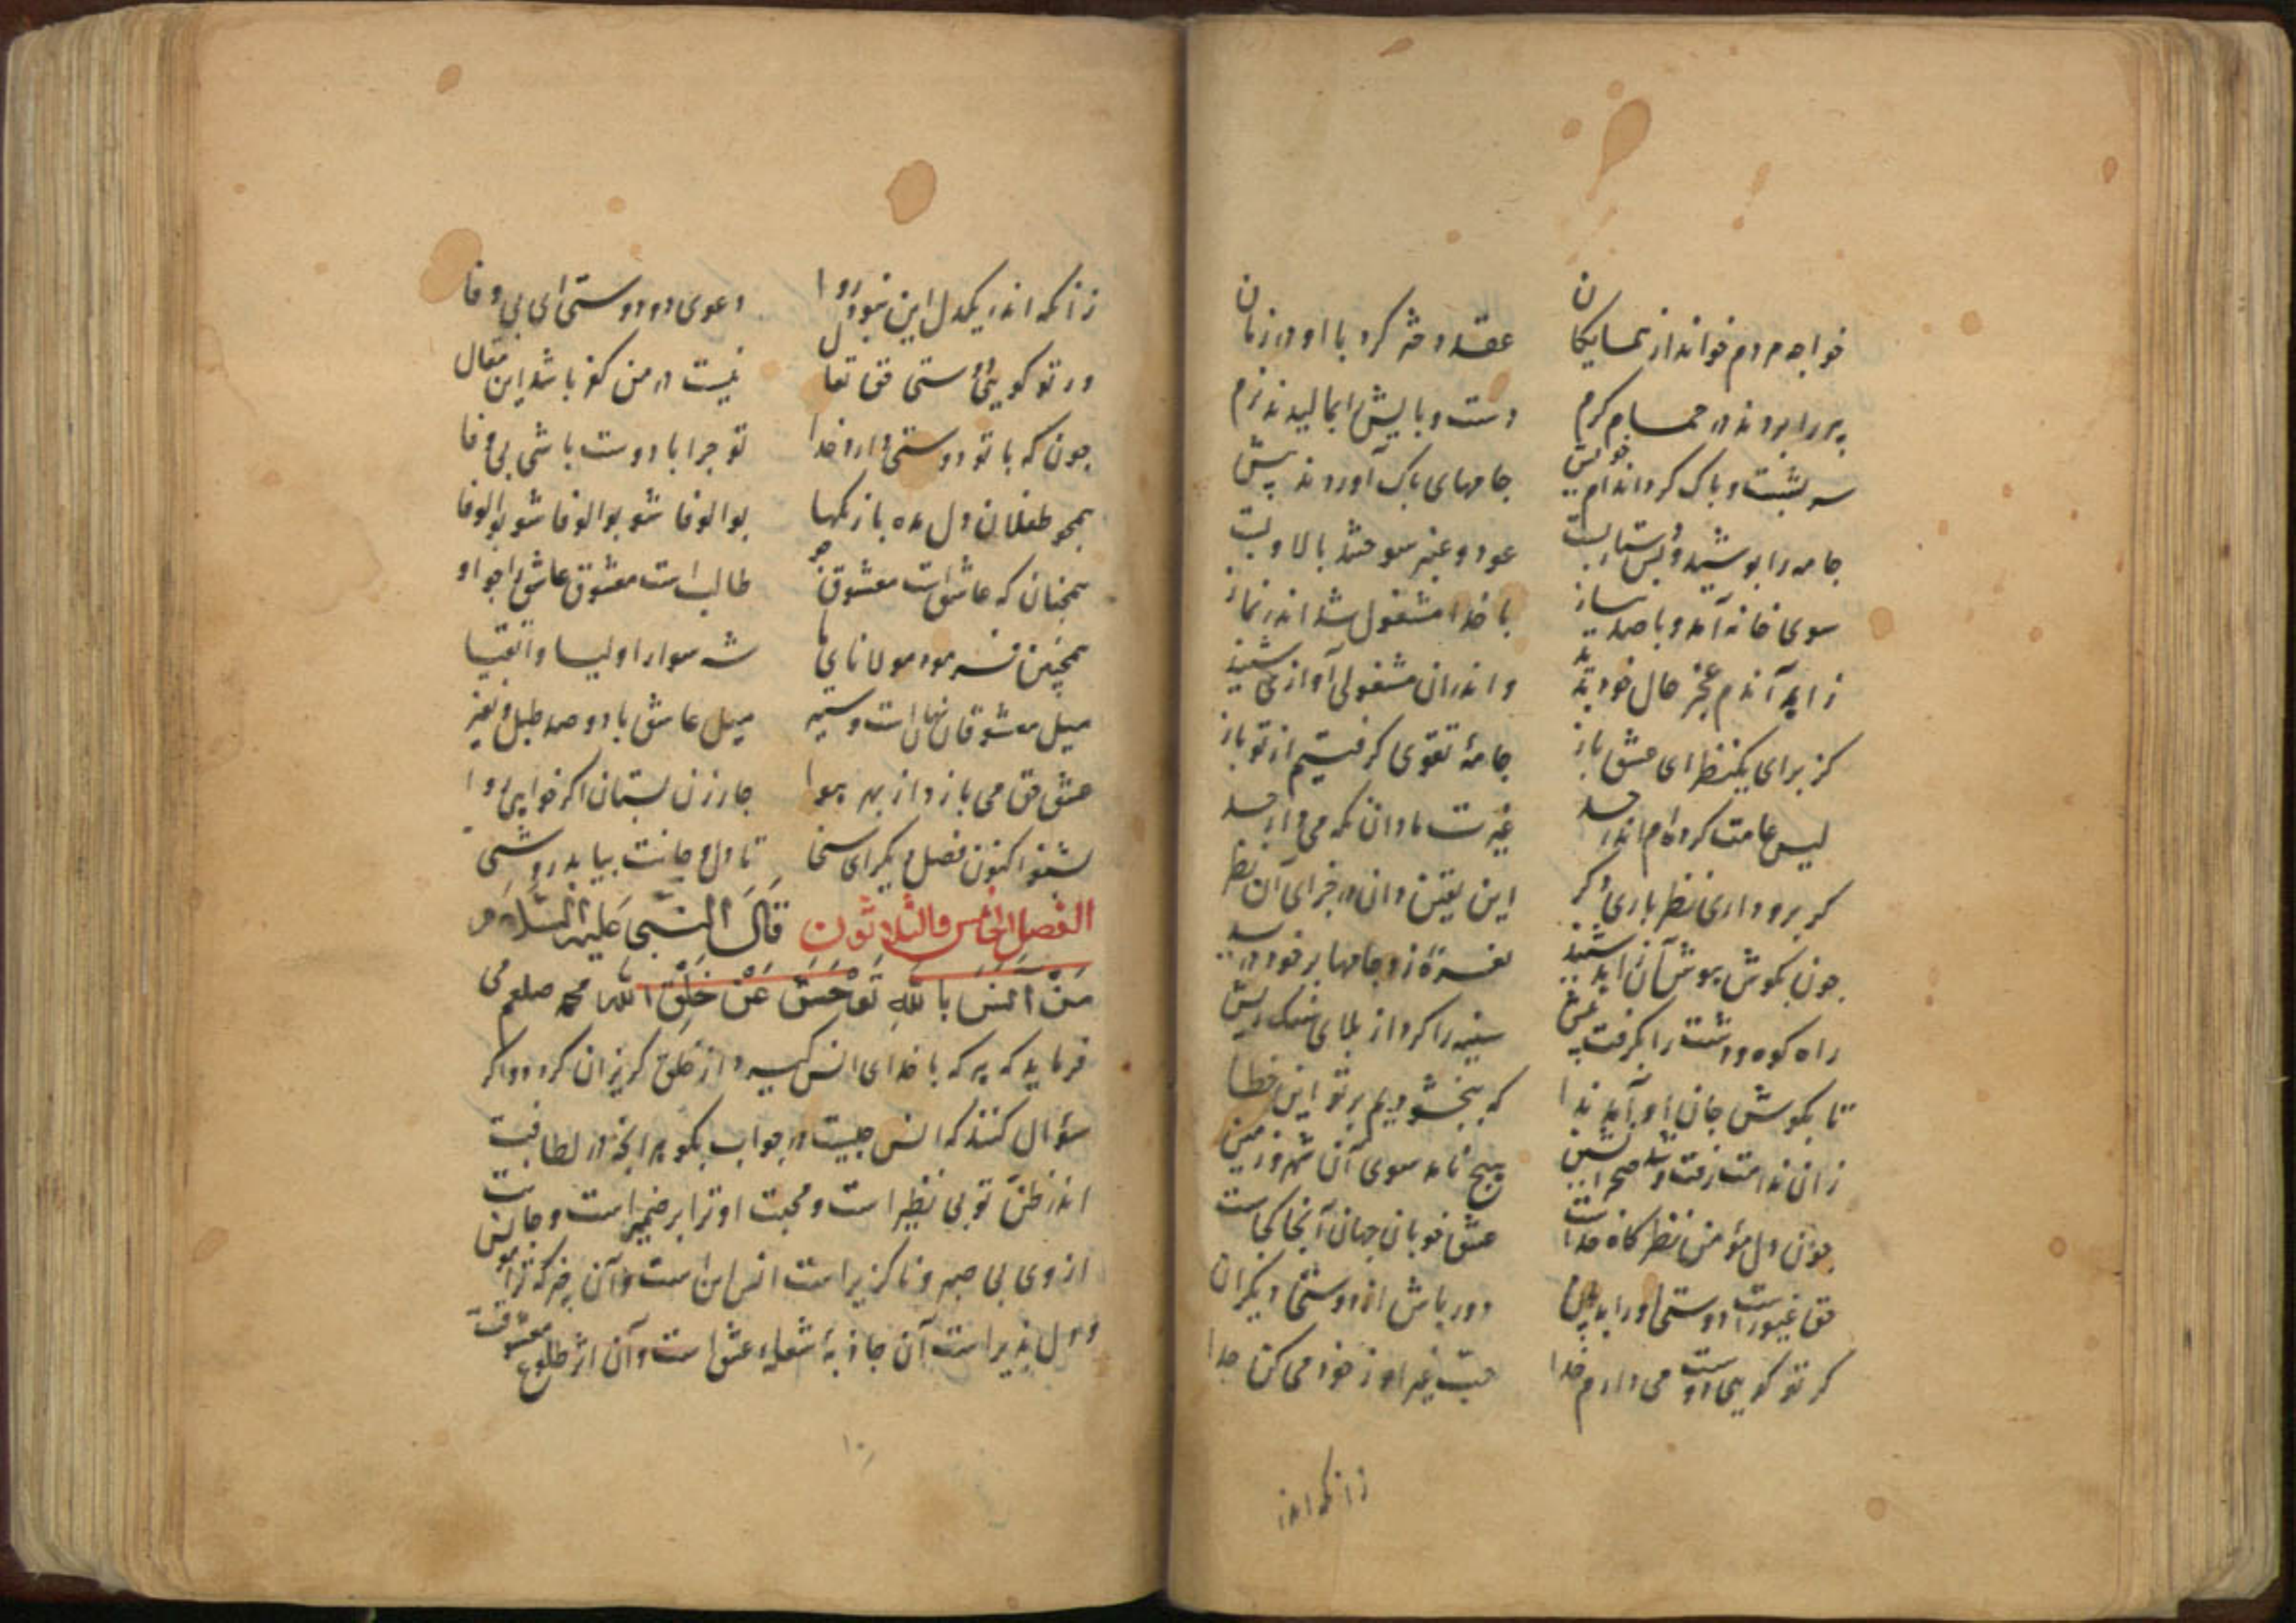 خواجه مردم خواند از همسایکان عقد دختر کرد با او در زمان
پیر را بردند در حمام کرم دست و پایش را بمالیدند نرم
سر بشست و پاک کرد اندام خویش جامهای پاک آوردند پیش
جامه را پوشید و دستار ببست عود و عنبر سوختند بالا و پست
سوی خانه آمد و با صد نیاز با خدا مشغول شد اندر نماز
و اندران مشغولی آوازی شنید زاهد آندم عجز حال خود بدید
کز برای یکنظر ای عشق باز جامهٔ تقوی کرفتیم از تو باز
لیس عامت کرده‌ام اندر جسد غیرت ما دان نکه می‌دارد
کر برو داری نظر باری دکر این یقین دان در جزای آن نظر
چون بکوش هوش آن زاهد شنید نعرهٔ زد جامها بر خود درید
راه کوه و دشت را بکرفت پیش سینه را کرد از بلای سنک ریش
تا بکوش جان او آید ندا که ببخشودیم بر تو این خطا
زان ندامت رفت و شد صحرا نشین هیچ نامد سوی آن شهر و زمین
چون دل مؤمن نظرکاه خداست عشق خوبان جهان آنجا کجاست
حق غیورست دوستی او را بدان دور باش از دوستی دیکران
کر تو کویی دوست می دارم خدا حب غیر او ز خود می کن جدا
زانکه اندر
زانکه اندر یکدل این نبود روا دعوی دو دوستی ای بی وفا
ور تو کویی دوستی حق تعال نیست در من کفر باشد این مقال
چون که با تو دوستی دارد خدا تو چرا با دوست باشی بی وفا
همچو طفلان دل مده با رنکها بوالوفا شو بوالوفا شو بوالوفا
همچنان که عاشق است معشوق جو طالب است معشوق عاشق را چو او
همچنین فرمود مولانای ما شه سوار اولیا و اتقیا
میل معشوقان نهان است و ستیر میل عاشق با دو صد طبل و نفیر
عشق حق می باز و از بهر هوا چار زن بستان اکر خواهی روا
بشنو اکنون فصل دیکر ای سخی تا دل و جانت بیابد روشنی
الفصل الخامس والثلاثون قَالَ النَّبِی عَلَیْهِ السَّلَام
مَنْ اَنَسَ بِاللّٰهِ تَوَحَّشَ عَنْ خَلْقِ اللّٰهِ محمد صلعم می
فرماید که هر که با خدای انس کیرد از خلق کریزان کردد و اکر
سؤال کنند که انس چیست در جواب بکو هر آنچه در لطافت
اندر ظن تو بی نظیر است و محبت او ترا بر ضمیر است و جانت
از وی بی صبر و ناکزیر است انس این است و آن هرکه ترا مونس
و دل پذیر است آن جاذبهٔ شعلهٔ عشق است و آن اثر طلوع معشوقست